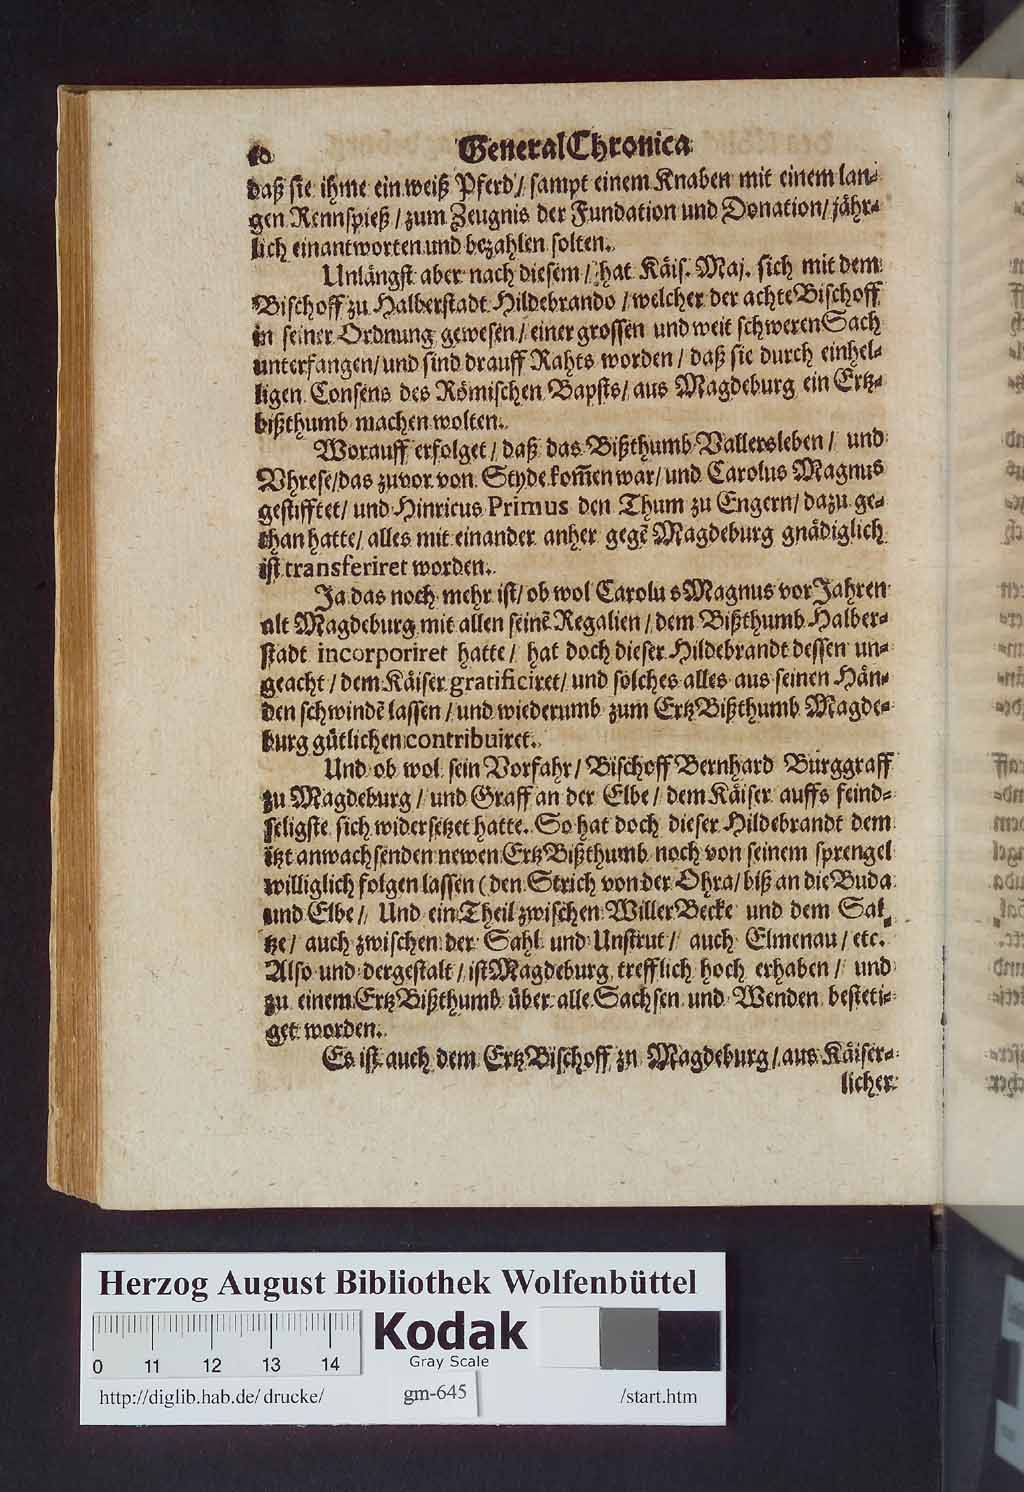 General Chronica
daß sie ihme ein weiß Pferd / sampt einem Knaben mit einem lan-
gen Rennspieß / zum Zeugnis der Fundation und Donation / jähr-
lich einantworten und bezahlen solten.
Unlängst aber nach diesem / hat Käis. Maj. sich mit dem
Bischoff zu Halberstadt Hildebrando / welcher der achte Bischoff
in seiner Ordnung gewesen / einer grossen und weit schweren Sach
unterfangen / und sind drauff Rahts worden / daß sie durch einhel-
ligen Consens des Römischen Bapsts / aus Magdeburg ein Ertz-
bißthumb machen wolten.
Worauff erfolget / daß das Bißthumb Vallersleben / und
Vhrese / das zuvor von Styde kom̃en war / und Carolus Magnus
gestifftet / und Hinricus Primus den Thum zu Engern / dazu ge-
than hatte / alles mit einander anher gegẽ Magdeburg gnädiglich
ist transferiret worden.
Ja das noch mehr ist / ob wol Carolus Magnus vor Jahren
alt Magdeburg mit allen seinẽ Regalien / dem Bißthumb Halber-
stadt incorporiret hatte / hat doch dieser Hildebrandt dessen un-
geacht / dem Käiser gratificiret / und solches alles aus seinen Hän-
den schwindẽ lassen / und wiederumb zum Ertz Bißthumb Magde-
burg gütlichen contribuiret.
Und ob wol sein Vorfahr / Bischoff Bernhard Burggraff
zu Magdeburg / und Graff an der Elbe / dem Käiser auffs feind-
seligste sich widersetzet hatte. So hat doch dieser Hildebrandt dem
itzt anwachsenden newen Ertz Bißthumb noch von seinem sprengel
williglich folgen lassen (den Strich von der Ohra / biß an die Buda
und Elbe / Und ein Theil zwischen Willer Becke und dem Sal-
tze / auch zwischen der Sahl und Unstrut / auch Elmenau / etc.
Also und dergestalt / ist Magdeburg trefflich hoch erhaben / und
zu einem Ertz Bißthumb über alle Sachsen und Wenden besteti-
get worden.
Es ist auch dem Ertz Bischoff zu Magdeburg / aus Käiser-
licher
Herzog August Bibliothek Wolfenbüttel
Kodak
Gray Scale
0 11 12 13 14
http://diglib.hab.de/drucke/ gm-645 /start.htm